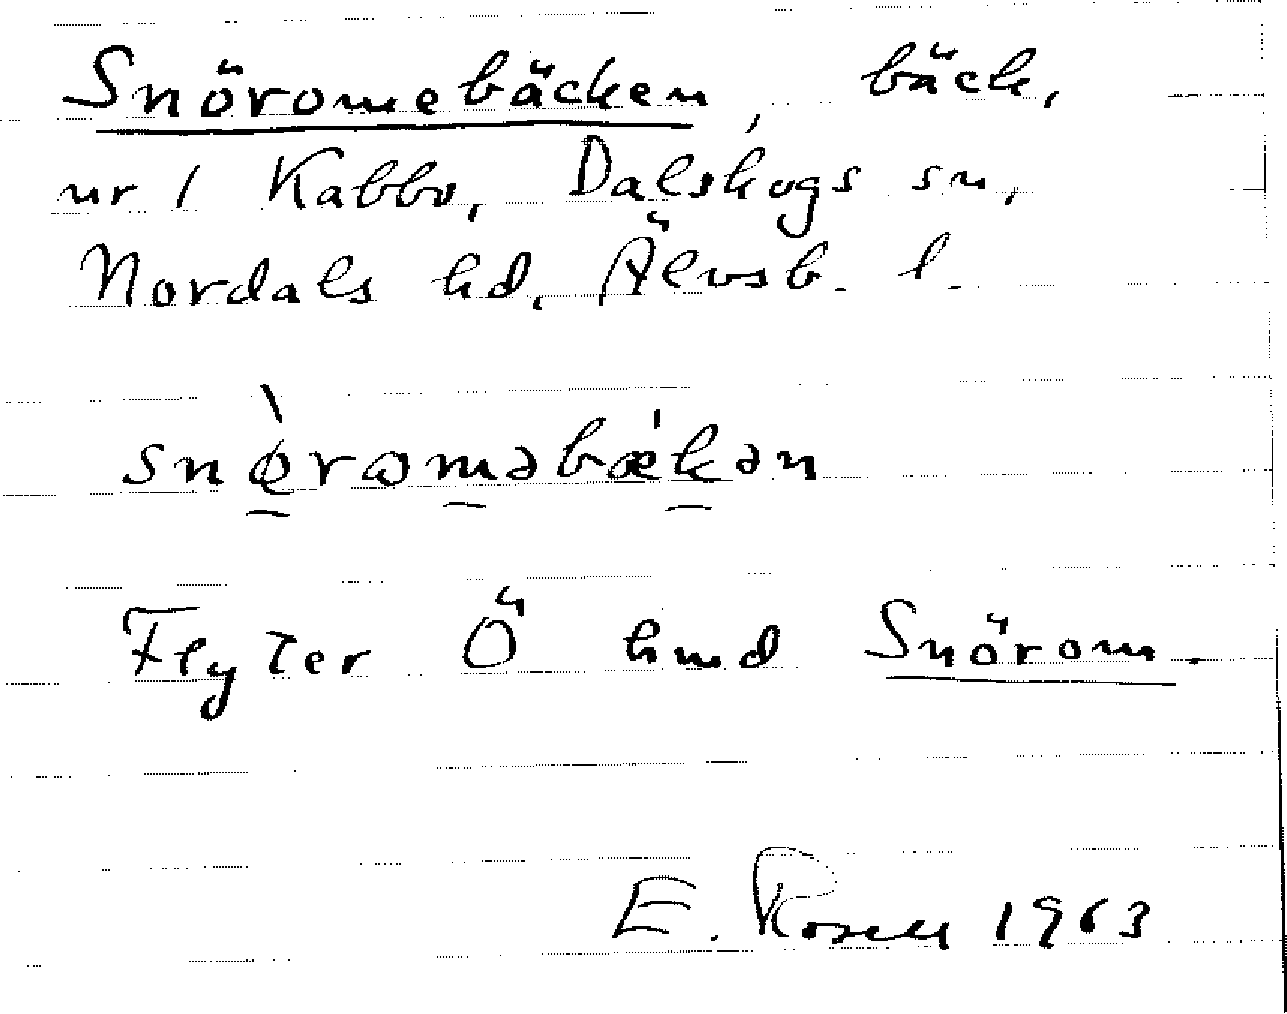 Snöromebäcken, bäck,
ur / Kabbo, Dalskogs sn,
Nordals hd, Älvsb. l.
snø̀ro̱məbǽkən
Flyter Ö hmd Snörom.
E. Rosell 1963